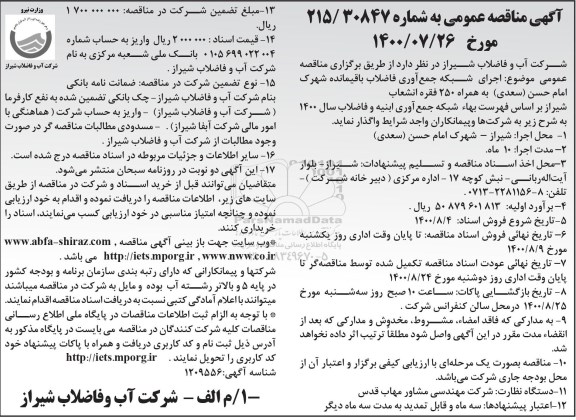 آگهی مناقصه عمومی به شماره ۳۰۸۴۷ /۲۱۵
مورخ ۱۴۰۰/۰۷/۲۶
شرکت آب و فاضلاب شیراز در نظر دارد از طریق برگزاری مناقصه
عمومی موضوع: اجرای شبکه جمع‌آوری فاضلاب باقیمانده شهرک
امام حسن (سعدی) به همراه ۲۵۰ فقره انشعاب
شیراز بر اساس فهرست بهاء شبکه جمع‌آوری ابنیه و فاضلاب سال ۱۴۰۰
به شرح زیر به شرکت‌ها و پیمانکاران واجد شرایط واگذار نماید.
۱- محل اجرا: شیراز – شهرک امام حسن (سعدی)
۲-مدت اجرا: ۱۰ ماه.
۳-محل اخذ اسناد مناقصه و تسلیم پیشنهادات: شیراز- بلوار
آیت‌اله‌ربانی- نبش کوچه ۱۷ - اداره مرکزی ( دبیر خانه شرکت ) -
تلفن: ۸-۳۲۲۸۱۱۵۶-۰۷۱۳
۴- برآورد اولیه: ۸۱۳ ۶۰۱ ۸۷۹ ۵۰ ریال .
۵-تاریخ شروع فروش اسناد: ۱۴۰۰/۸/۴
۶- تاریخ نهائی فروش اسناد مناقصه: تا پایان وقت اداری روز یکشنبه
مورخ ۱۴۰۰/۸/۹
۷- تاریخ نهائی عودت اسناد مناقصه تکمیل شده توسط مناقصه‌گر تا
پایان وقت اداری روز دوشنبه مورخ ۱۴۰۰/۸/۲۴
۸- تاریخ بازگشایی پاکات: ساعت ۱۰ صبح روز سه‌شنبه مورخ
۱۴۰۰/۸/۲۵ درمحل سالن کنفرانس شرکت .
۹- به مدارکی که فاقد امضاء، مشروط، مخدوش و مدارکی که بعد از
انقضاء مدت مقرر در این آگهی واصل شود مطلقاً ترتیب اثر داده نخواهد
شد.
۱۰- مناقصه بصورت یک مرحله‌ای با ارزیابی کیفی برگزار و اعتبار آن از
محل بودجه جاری شرکت می‌باشد.
۱۱-دستگاه نظارت: شرکت مهندسی مشاور مهاب قدس
۱۲-اعتبار پیشنهادها: سه ماه و قابل تمدید به مدت سه ماه دیگر
وزارت نیرو
شرکت آب و فاضلاب شیراز
۱۳-مبلغ تضمین شرکت در مناقصه: ۰۰۰ ۰۰۰ ۷۰۰ ۱
ریال.
۱۴- قیمت اسناد: ۰۰۰ ۰۰۰ ۲ ریال واریز به حساب شماره
۰۱۰۵۶۹۹۰۲۲۰۰۴ بانک ملی شعبه مرکزی به نام
شرکت آب و فاضلاب شیراز .
۱۵- نوع تضمین شرکت در مناقصه: ضمانت نامه بانکی
بنام شرکت آب و فاضلاب شیراز - چک بانکی تضمین شده به نفع کارفرما
( شرکت آب و فاضلاب شیراز) - واریز به حساب شرکت (هماهنگی با
امور مالی شرکت آبفا شیراز) . - مسدودی مطالبات مناقصه گر در صورت
وجود مطالبات از شرکت آب و فاضلاب شیراز .
۱۶- سایر اطلاعات و جزئیات مربوطه در اسناد مناقصه درج شده است.
۱۷- این آگهی دو نوبت در روزنامه سبحان منتشر می‌شود.
متقاضیان می‌توانند قبل از خرید اسناد و شرکت در مناقصه از طریق
سایت های زیر، اطلاعات مناقصه را دریافت نموده و اقدام به خود ارزیابی
نموده و چنانچه امتیاز مناسبی در خود ارزیابی کسب می‌نمایند، اسناد را
خریداری کنند.
*وب سایت جهت باز بینی آگهی مناقصه , www.abfa-shiraz.com
http://iets.mporg.ir , www.nww.co.ir می باشد .
شرکتها و پیمانکارانی که دارای رتبه بندی سازمان برنامه و بودجه کشور
در پایه ۵ و بالاتر رشته آب بوده و مایل به شرکت در مناقصه میباشند
میتوانند با اعلام آمادگی کتبی نسبت به دریافت اسناد مناقصه اقدام نمایند.
* با توجه به الزام ثبت اطلاعات مناقصات در پایگاه ملی اطلاع رسانی
مناقصات کلیه شرکت کنندگان در مناقصه می بایست در پایگاه مذکور به
آدرس ذیل ثبت نام و کد کاربری دریافت و همراه با پاکات پیشنهاد خود
کد کاربری را تحویل نمایند . http://iets.mporg.ir
شناسه آگهی:۱۲۰۹۵۵۶
-۱/م الف - شرکت آب وفاضلاب شیراز